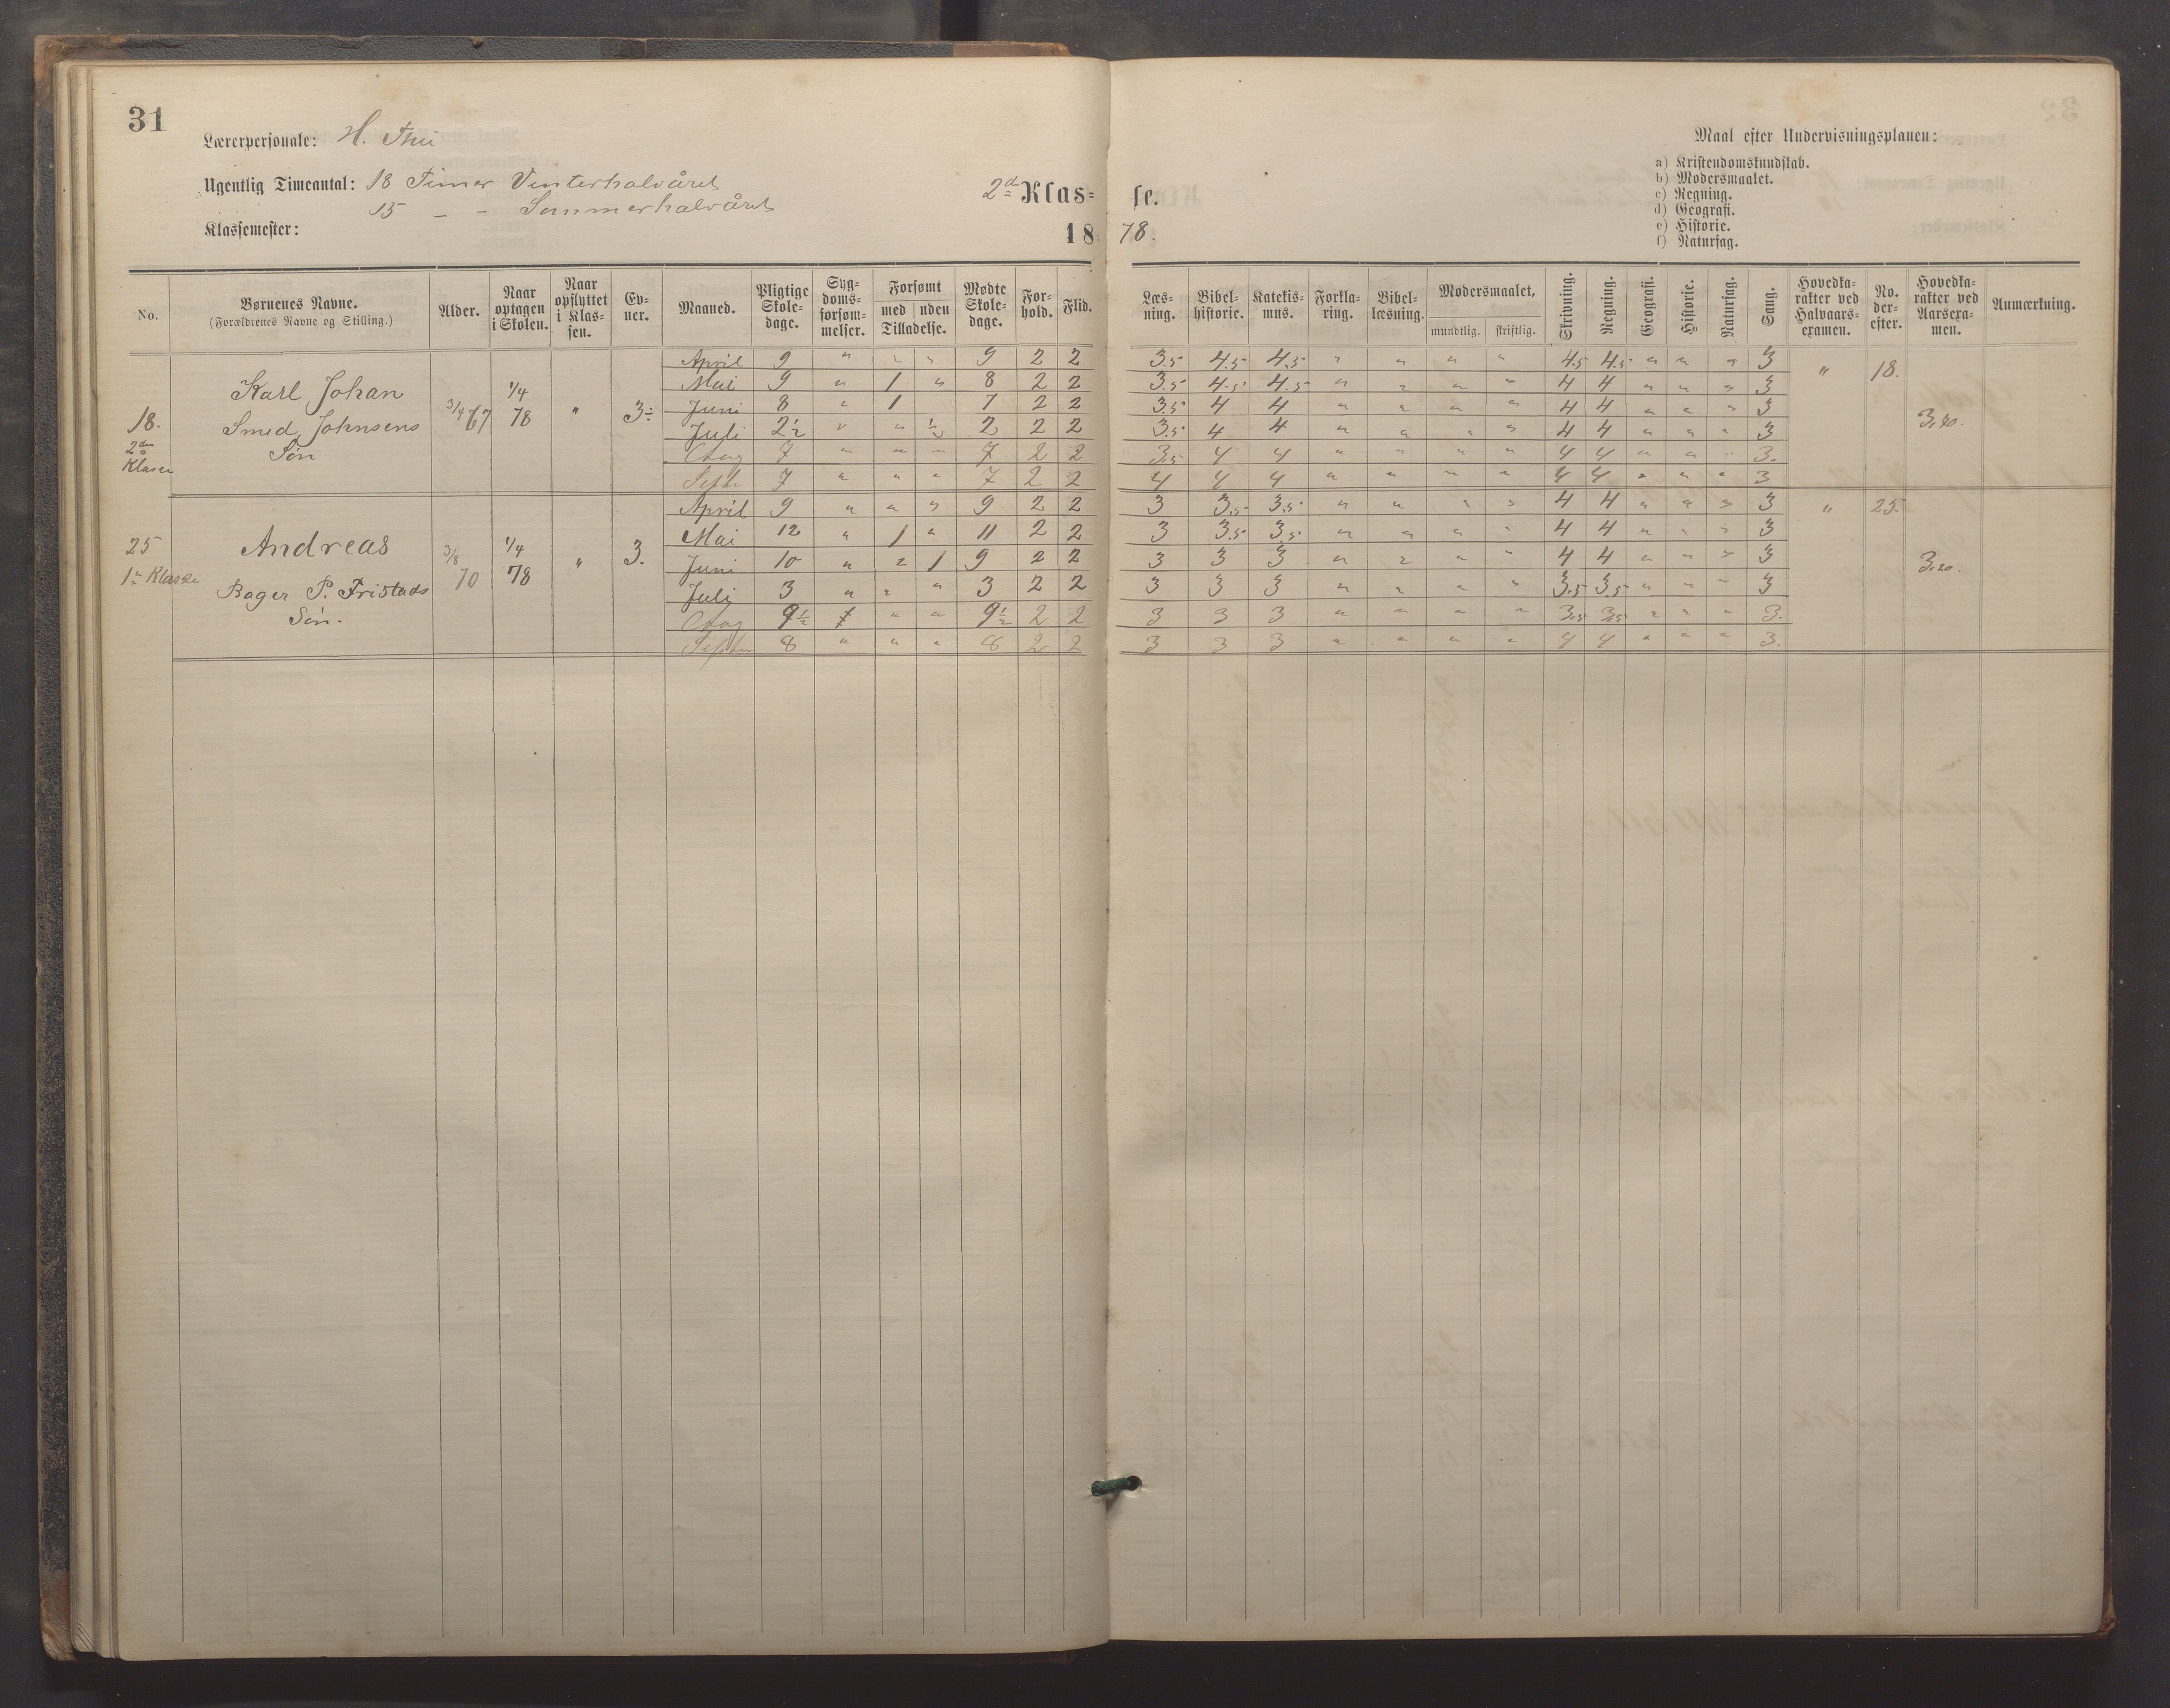 31
Lærerpersonale: H. Thu
Ugentlig Timeantal: 18 Timer Vinterhalvåret
15 — - Sommerhalvåret
Klassemester:
2den Klas= se.
18 78.
Maal efter Undervisningsplanen:
a) Kristendomskundskab.
b) Modersmaalet.
c) Regning.
d) Geografi.
e) Historie.
f) Naturfag.
No. | Børnenes Navne. (Forældrenes Navne og Stilling.) | Alder. | Naar optagen i Skolen. | Naar opflyttet i Klas-sen. | Ev-ner. | Maaned. | Pligtige Skole-dage. | Syg-doms-forsøm-melser. | Forsømt med uden Tilladelse. | Mødte Skole-dage. | For-hold. | Flid. | Læs-ning. | Bibel-historie. | Katekis-mus. | Forkla-ring. | Bibel-læsning. | Modersmaalet, mundtlig. skriftlig. | Skrivning. | Regning. | Geografi. | Historie. | Naturfag. | Sang. | Hovedka-rakter ved Halvaars-examen. | No. der-efter. | Hovedka-rakter ved Aarsexa-men. | Anmærkning.
18. 2den Klasse | Karl Johan Smed Johnsens Søn | 3/4 67 | 1/4 78 | " | 3÷
April 9 " " " 9 2 2 3.5 4.5 4.5 " " " " 4.5 4.5 " " " 3 " 18.
Mai 9 " 1 " 8 2 2 3.5 4.5 4.5 " " " " 4 4 " " " 3
Juni 8 " 1 7 2 2 3.5 4 4 " " " " 4 4 " " " 3
Juli 2½ " " ½ 2 2 2 3.5 4 4 " " " " 4 4 " " " 3
Aug 7 " " " 7 2 2 3.5 4 4 " " " " 4 4 " " " 3.
Septr 7 " " " 7 2 2 4 4 4 " " " " 4 4 " " " 3
25 1ste Klasse | Andreas Bager P. Fristads Søn. | 3/8 70 | 1/4 78 | " | 3.
April 9 " " " 9 2 2 3 3.5 3.5 " " " " 4 4 " " " 3 " 25.
Mai 12 " 1 " 11 2 2 3 3.5 3.5 " " " " 4 4 " " " 3
Juni 10 " " 1 9 2 2 3 3 3 " " " " 4 4 " " " 3
3,20.
Juli 3 " " " 3 2 2 3 3 3 " " " " 3.5 3.5 " " " 3
Aug 9½ " " 9½ 2 2 3 3 3 " " " " 3.5 3.5 " " " 3.
Septbr 8 " " " 8 2 2 3 3 3 " " " " 4 4 " " " 3.